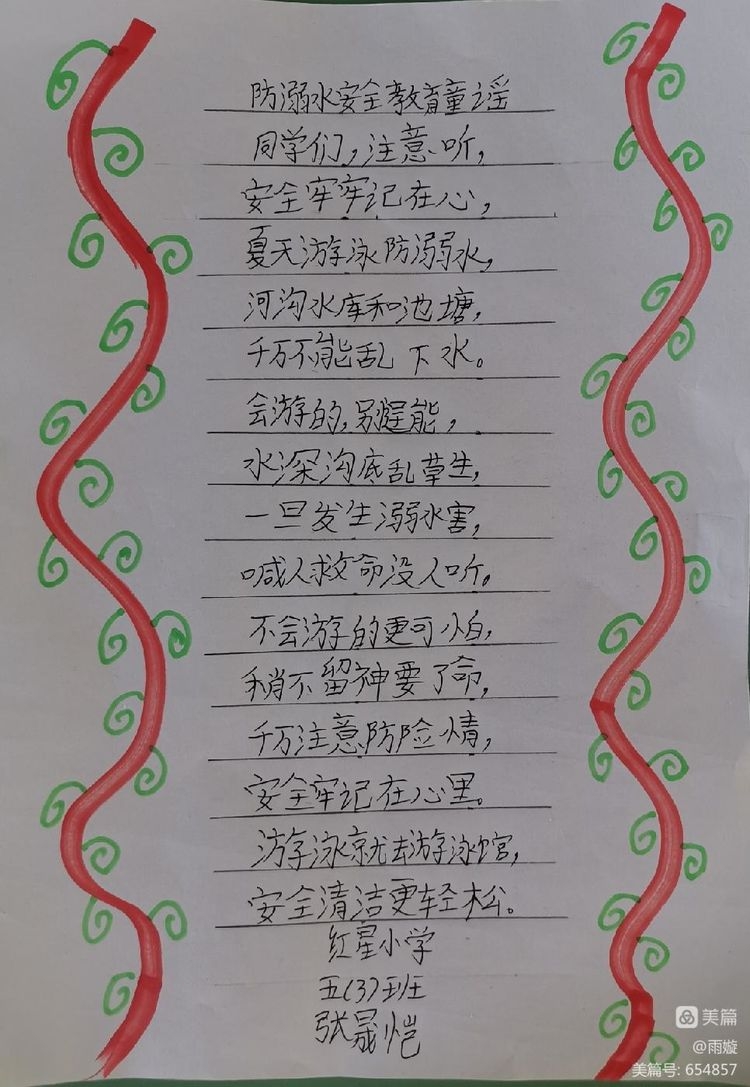 防溺水安全教育童谣
同学们,注意听,
安全牢牢记在心,
夏天游泳防溺水,
河沟水库和池塘,
千万不能乱下水。
会游的,别逞能,
水深沟底乱草生,
一旦发生溺水害,
喊人救命没人听。
不会游的更可怕,
稍不留神要了命,
千万注意防险情,
安全牢记在心里。
游泳就去游泳馆,
安全清洁更轻松。
红星小学
五(3)班
张晟恺
美篇
@雨嫙
美篇号: 654857